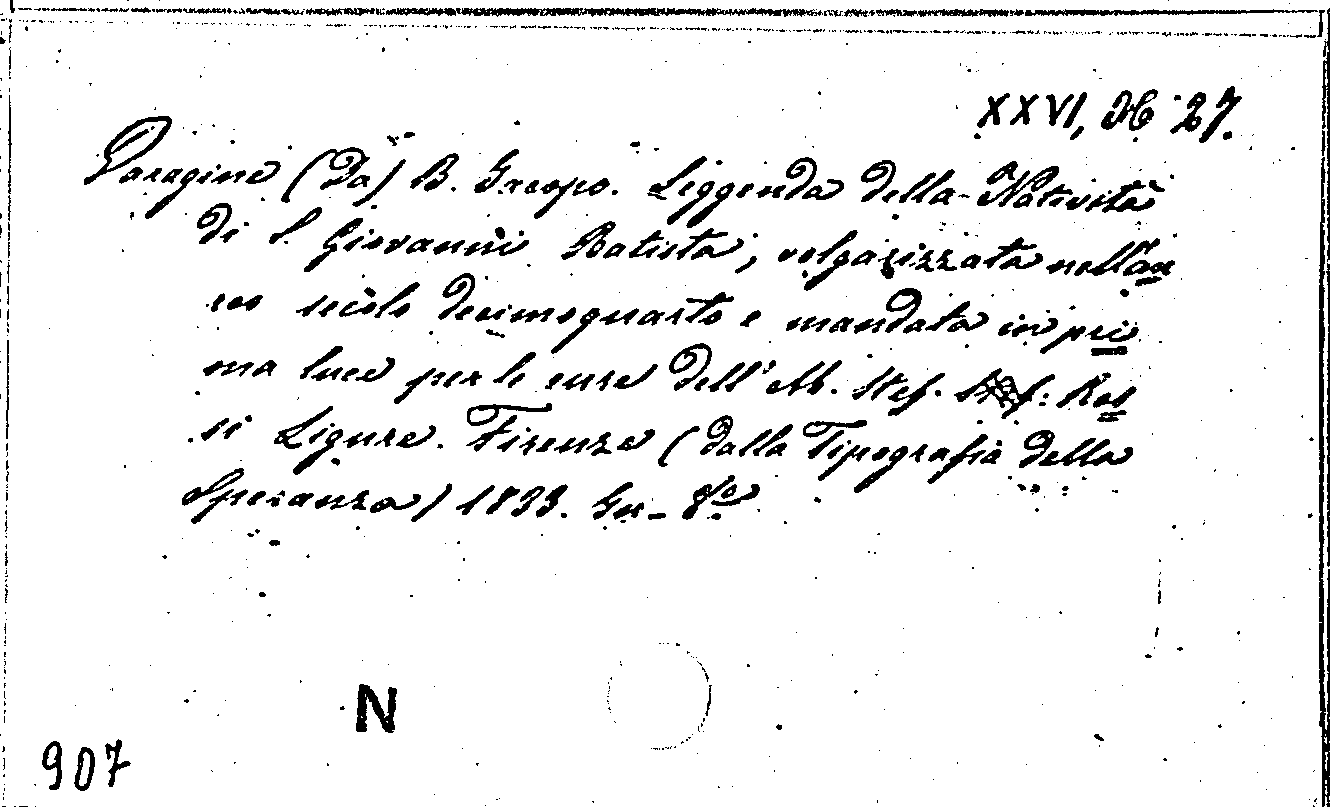 XXVI, H 27.
Varagine (Da) B. Jacopo. Leggenda della Natività
di S. Giovanni Batista, volgarizzata nell'au
reo secolo decimoquarto e mandata in pri
ma luce per le cure dell'Ab. Stef. Ros
si Ligure. Firenze (dalla Tipografia della
Speranza) 1833. In-8.o
N
907